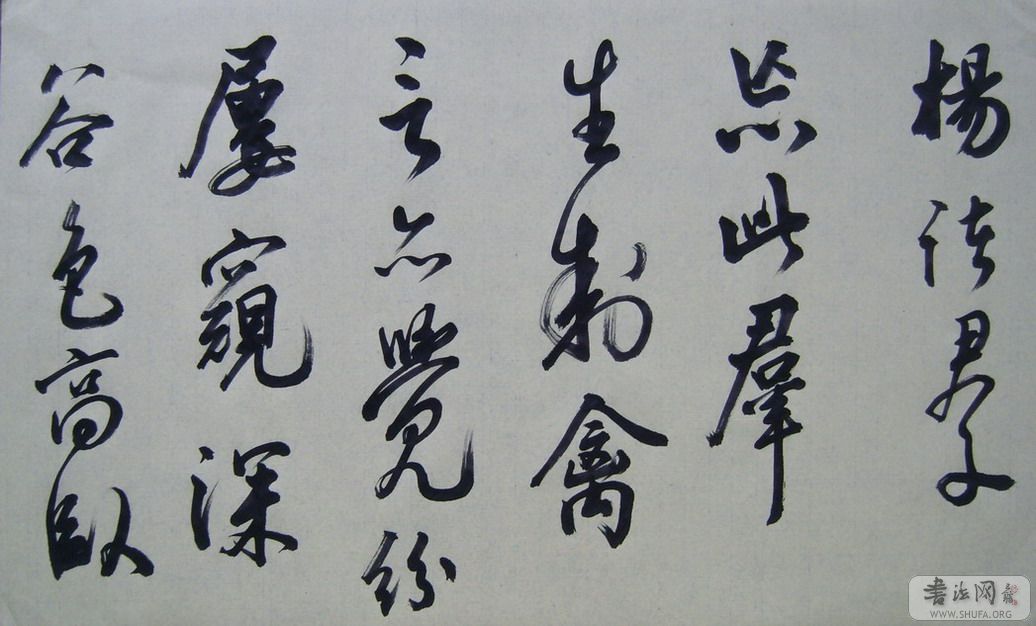 楊諸君子
此羣
生制禽
言亦覺紛
屢窺深
谷色高臥
書法网
WWW.SHUFA.ORG